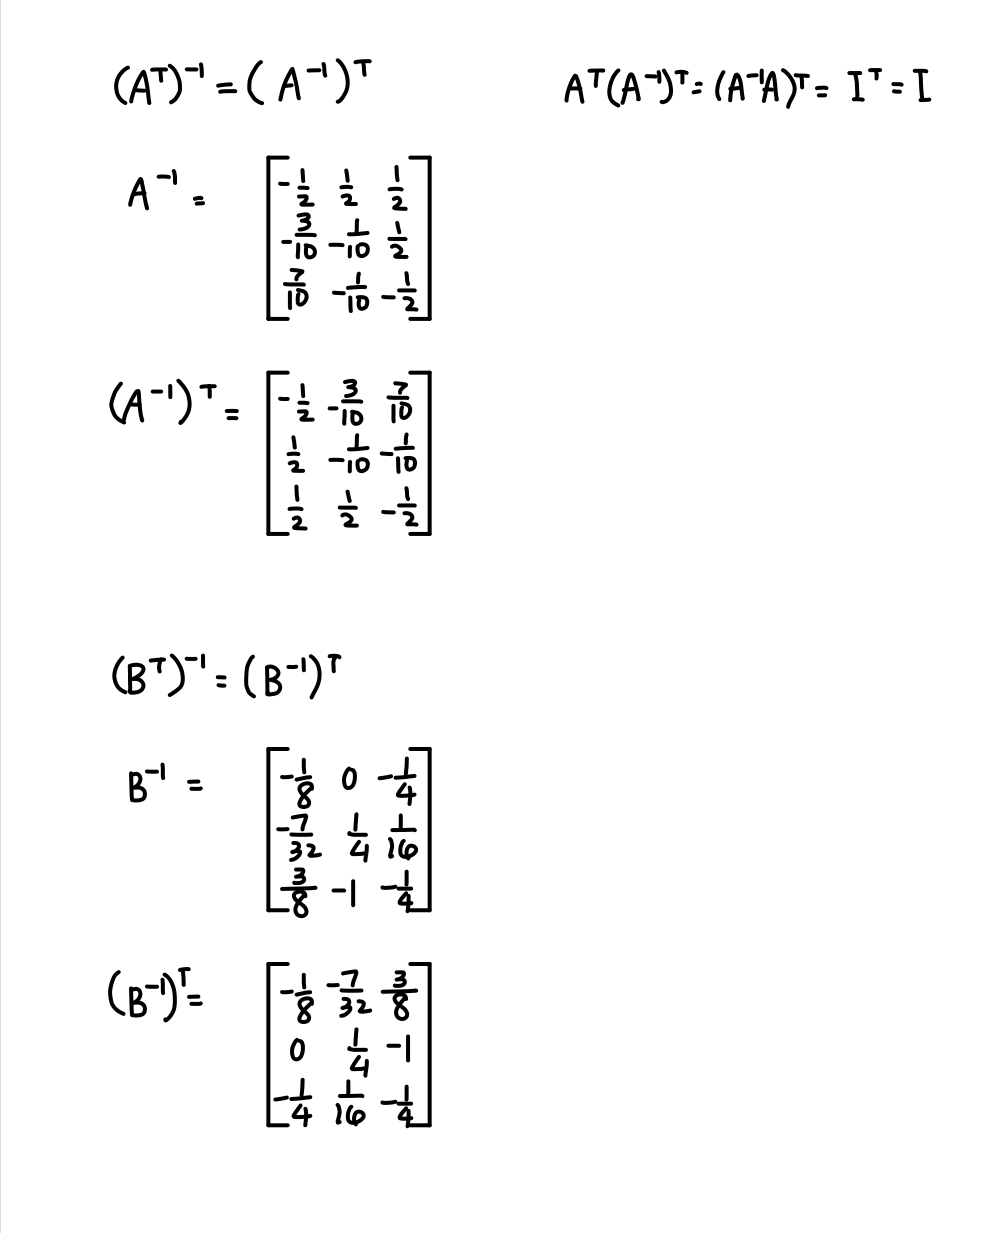 (Aᵀ)⁻¹ = (A⁻¹)ᵀ
Aᵀ(A⁻¹)ᵀ = (A⁻¹A)ᵀ = Iᵀ = I
A⁻¹ = [ -1/2 1/2 1/2
-3/10 -1/10 1/2
7/10 -1/10 -1/2 ]
(A⁻¹)ᵀ = [ -1/2 -3/10 7/10
1/2 -1/10 -1/10
1/2 1/2 -1/2 ]
(Bᵀ)⁻¹ = (B⁻¹)ᵀ
B⁻¹ = [ -1/8 0 -1/4
-7/32 1/4 1/16
3/8 -1 -1/4 ]
(B⁻¹)ᵀ = [ -1/8 -7/32 3/8
0 1/4 -1
-1/4 1/16 -1/4 ]